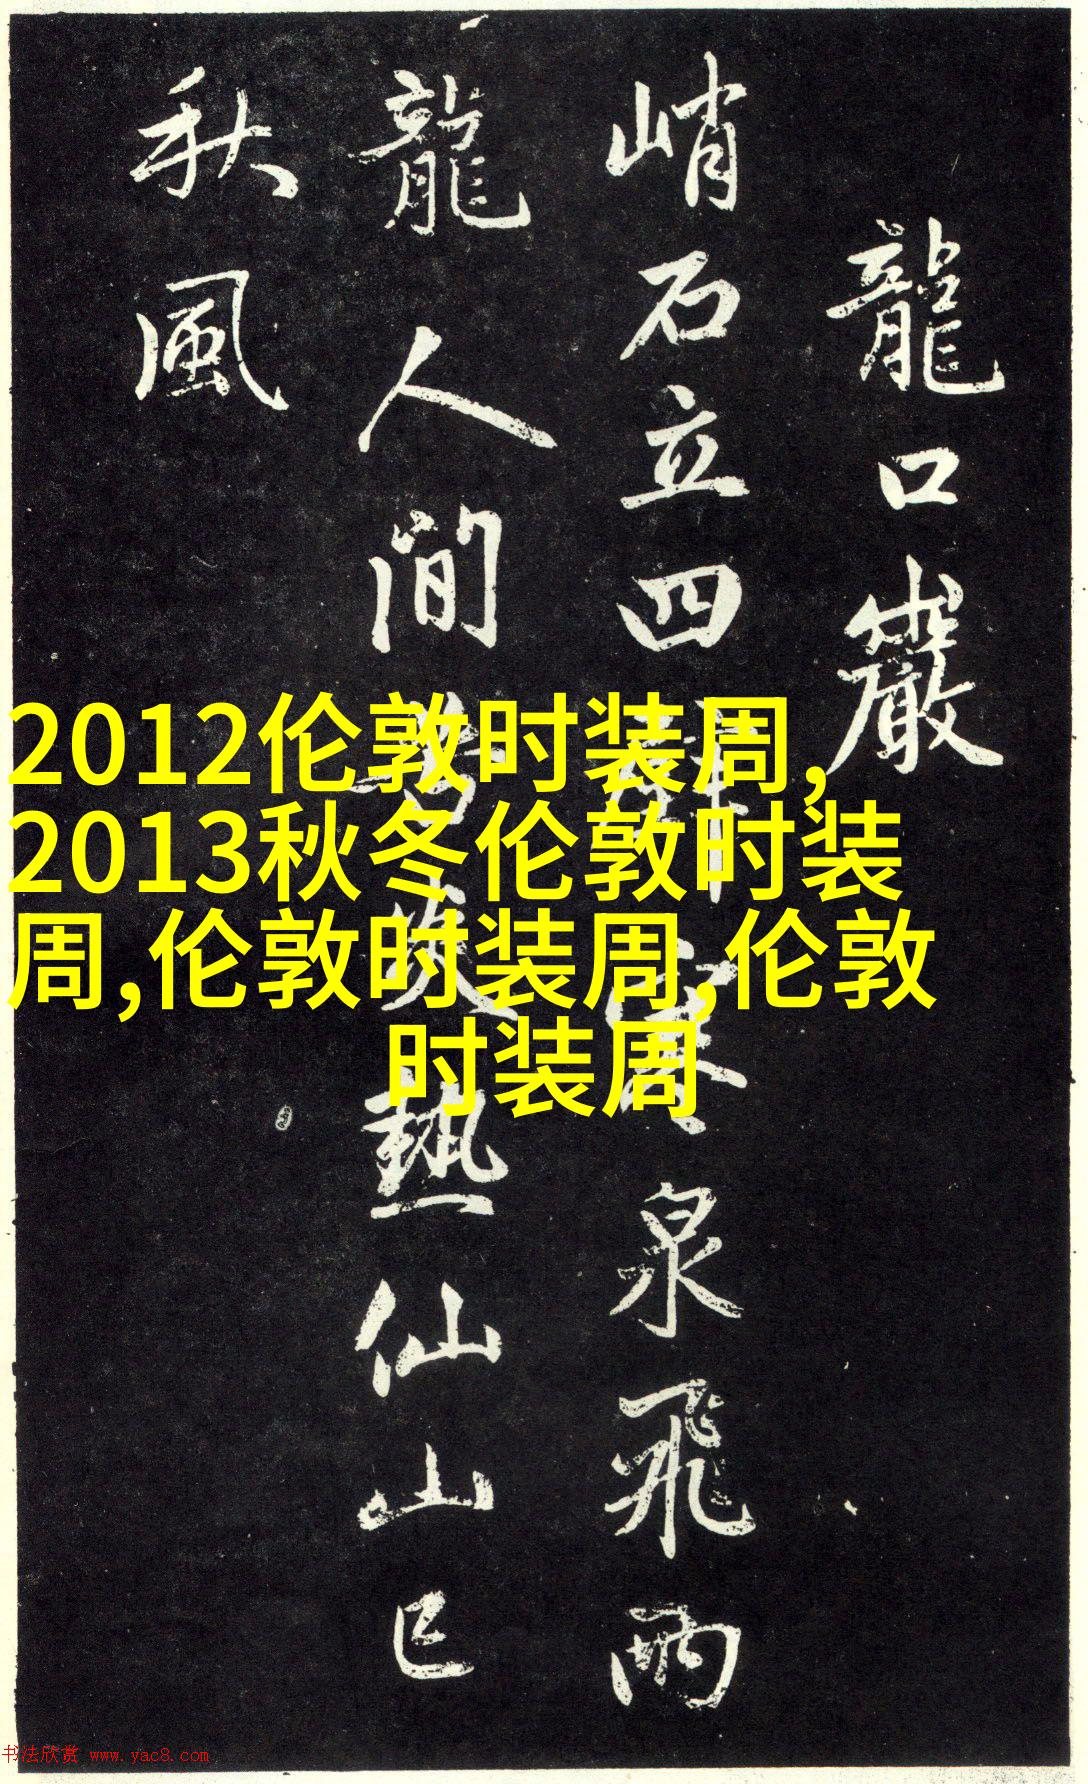 龍口巖
峭石立四壁寒泉飛兩
龍人間苦炎熱仙山已
秋風
2012伦敦时装周,
2013秋冬伦敦时装
周,伦敦时装周,伦敦
时装周
书法欣赏 www.yac8.com